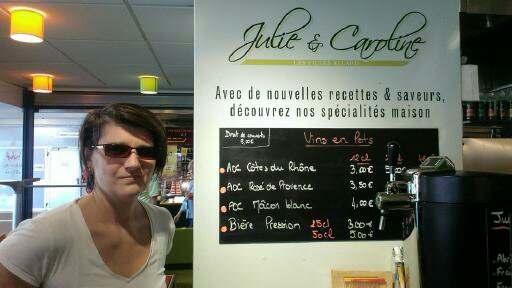 Julie & Caroline
Avec de nouvelles recettes & saveurs,
découvrez nos spécialités maison
Droit de couverts
3,00€
Vins en Pots
12cl
AOC Côtes du Rhône 3,00€
AOC Rosé de Provence 3,50€
AOC Mâcon blanc 4,00€
Bière Pression 25cl 3.00€
50cl 5.00€